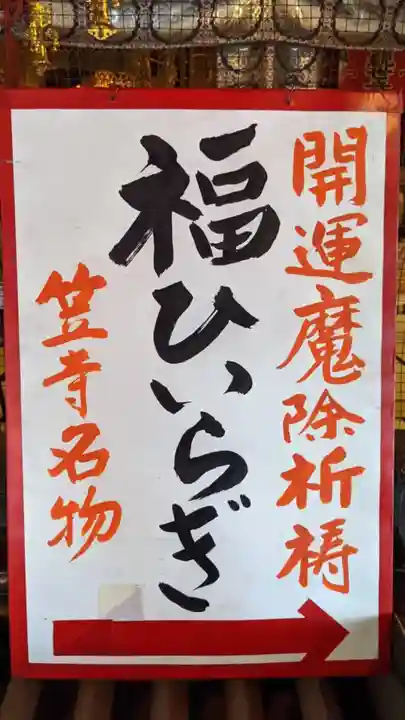 開運魔除祈祷
福ひいらぎ
笠寺名物